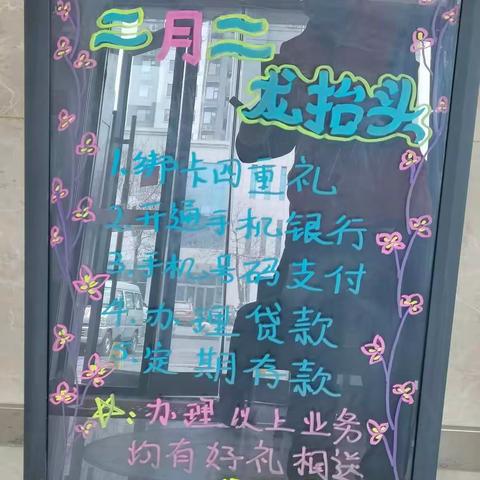 二月二
龙抬头
1.绑卡四重礼
2.开通手机银行
3.手机号码支付
4.办理贷款
5.定期存款
☆:办理以上业务
均有好礼相送